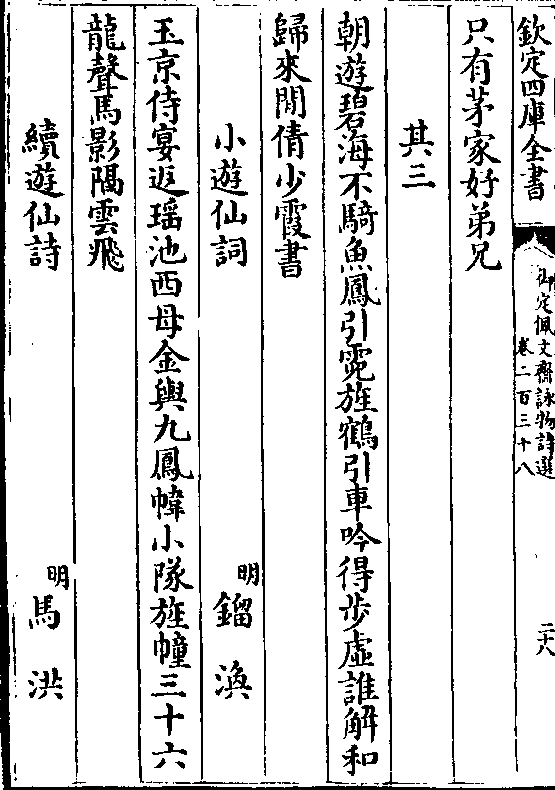 欽定四庫全書
御定佩文齋詠物詩選
卷二百三十八
二十八
只有茅家好弟兄
其三
朝遊碧海不騎魚鳳引霓旌鶴引車吟得步虛誰解和
歸來閒倩少霞書
小遊仙詞
明
鎦渙
玉京侍宴返瑶池西母金輿九鳳幃小隊旌幢三十六
龍聲馬影隔雲飛
續遊仙詩
明
馬洪